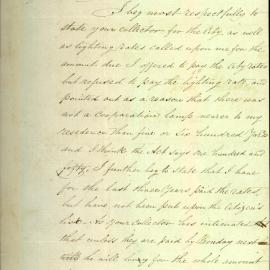 I beg most respectfully to
state your collector for the City, as well
as lighting rates called upon me for the
amount due I offered to pay the City rates
but refused to pay the lighting rate, and
pointed out as a reason that there was
not a corporation lamp nearer to my
residence than five or six hundred Yards
and I think the Act says one hundred and
fifty, I further beg to state that I have
for the last three Years paid the rates,
but have not been put upon the Citizen's
list. As your collector has intimated
that unless they are paid by Monday next
he will levy for the whole amount